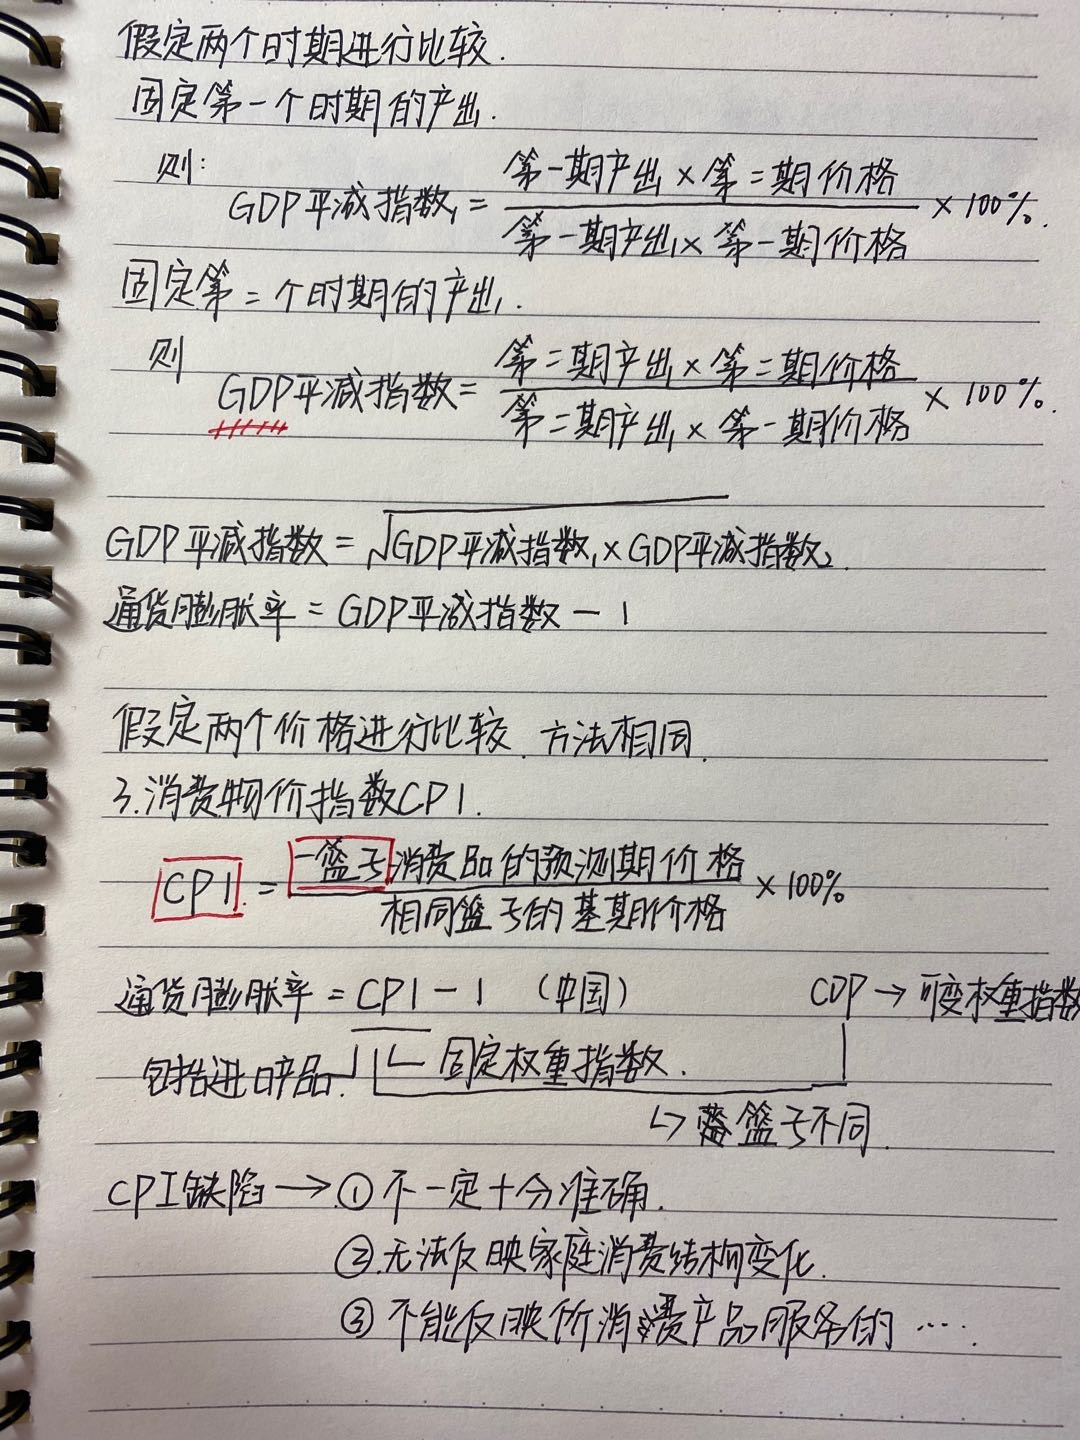 假定两个时期进行比较.
固定第一个时期的产出.
则: GDP平减指数₁ = 第一期产出 × 第二期价格 / 第一期产出 × 第一期价格 × 100%.
固定第二个时期的产出.
则 GDP平减指数 = 第二期产出 × 第二期价格 / 第二期产出 × 第一期价格 × 100%.
GDP平减指数 = √GDP平减指数₁ × GDP平减指数₂
通货膨胀率 = GDP平减指数 - 1
假定两个价格进行比较. 方法相同.
3.消费物价指数CPI.
CPI = 一篮子消费品的预测期价格 / 相同篮子的基期价格 × 100%
通货膨胀率 = CPI - 1 (中国) CDP → 可变权重指数
包括进口产品. 固定权重指数.
↳ 篮子不同.
CPI缺陷 → ① 不一定十分准确.
② 无法反映家庭消费结构变化.
③ 不能反映价消费产品服务的 ….